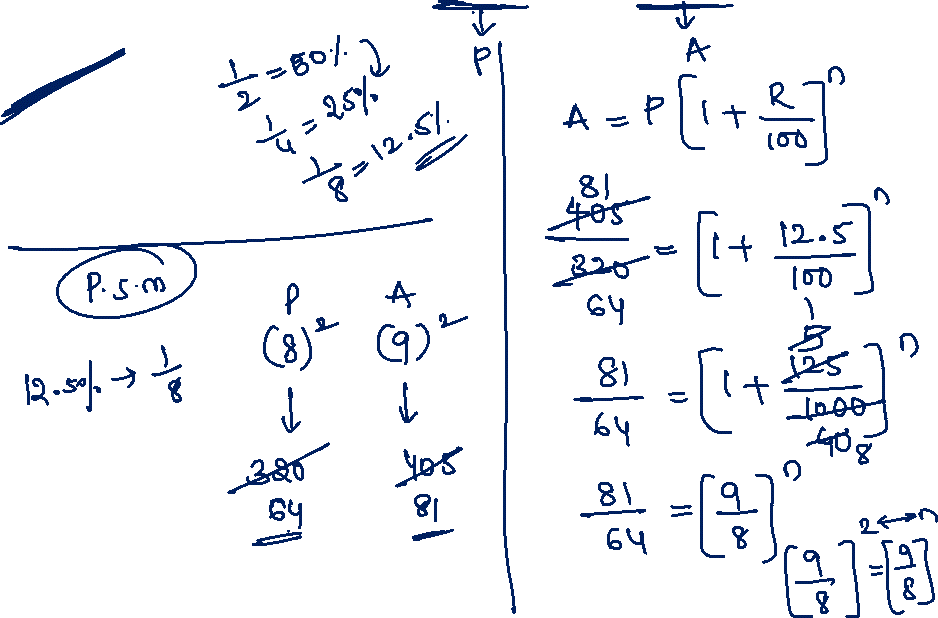 P
A
1/2 = 50%
1/4 = 25%
1/8 = 12.5%
P.S.M
12.50% → 1/8
P A
(8)² (9)²
↓ ↓
320 405
64 81
A = P [1 + R/100]ⁿ
81
405/320 = [1 + 12.5/100]ⁿ
64
1
5
81/64 = [1 + 125/1000]ⁿ
40 8
81/64 = [9/8]ⁿ
[9/8]² = [9/8]ⁿ
2 ↔ n